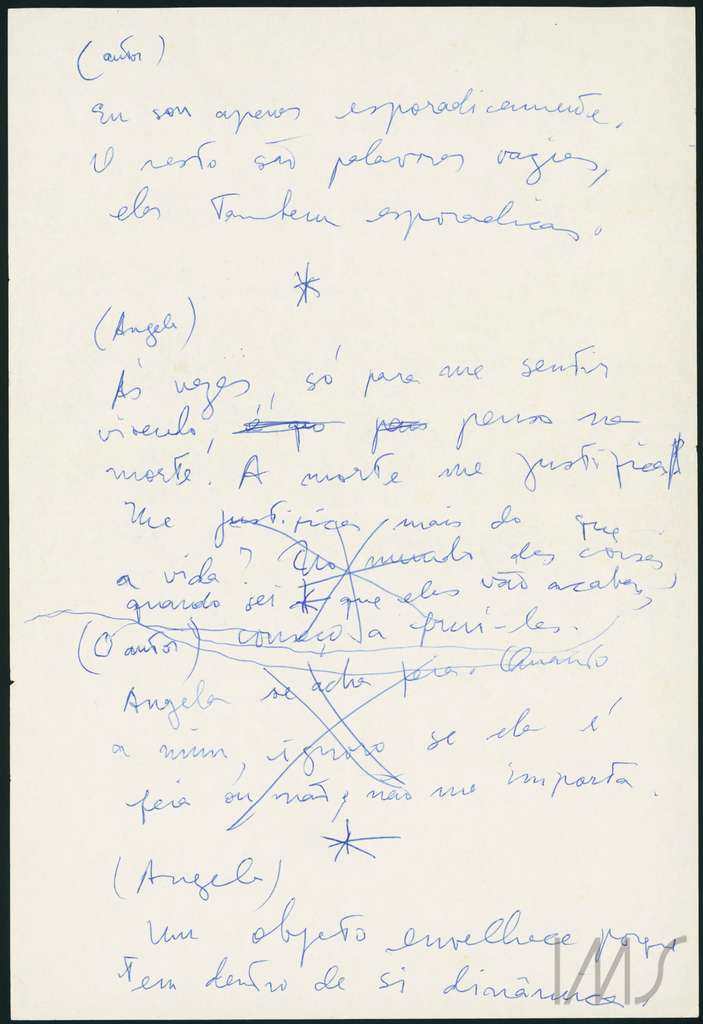 (autor)
Eu sou apenas esporadicamente.
O resto são palavras vazias,
elas tambem esporadicas.
*
(Angela)
Às vezes, só para me sentir
vivendo, penso na
morte. A morte me justifica
Me justifica mais do que
a vida? das coisas
quando sei que elas vão acabar,
começo a fruí-las.
(O autor)
Angela se acha feia. Quanto
a mim, ignoro se ela é
feia ou não, não me importa.
*
(Angela)
Um objeto envelhece porque
tem dentro de si dinâmica.
IMS